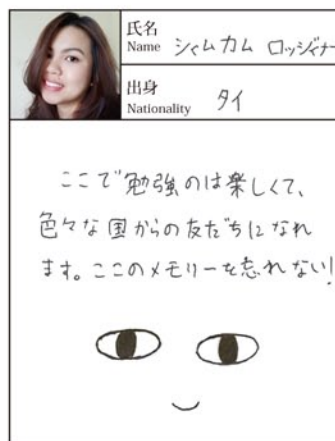 氏名
Name シャムカム ロッジャナー
出身
Nationality タイ
ここで勉強のは楽しくて、
色々な国からの友だちになれ
ます。ここのメモリーを忘れない!